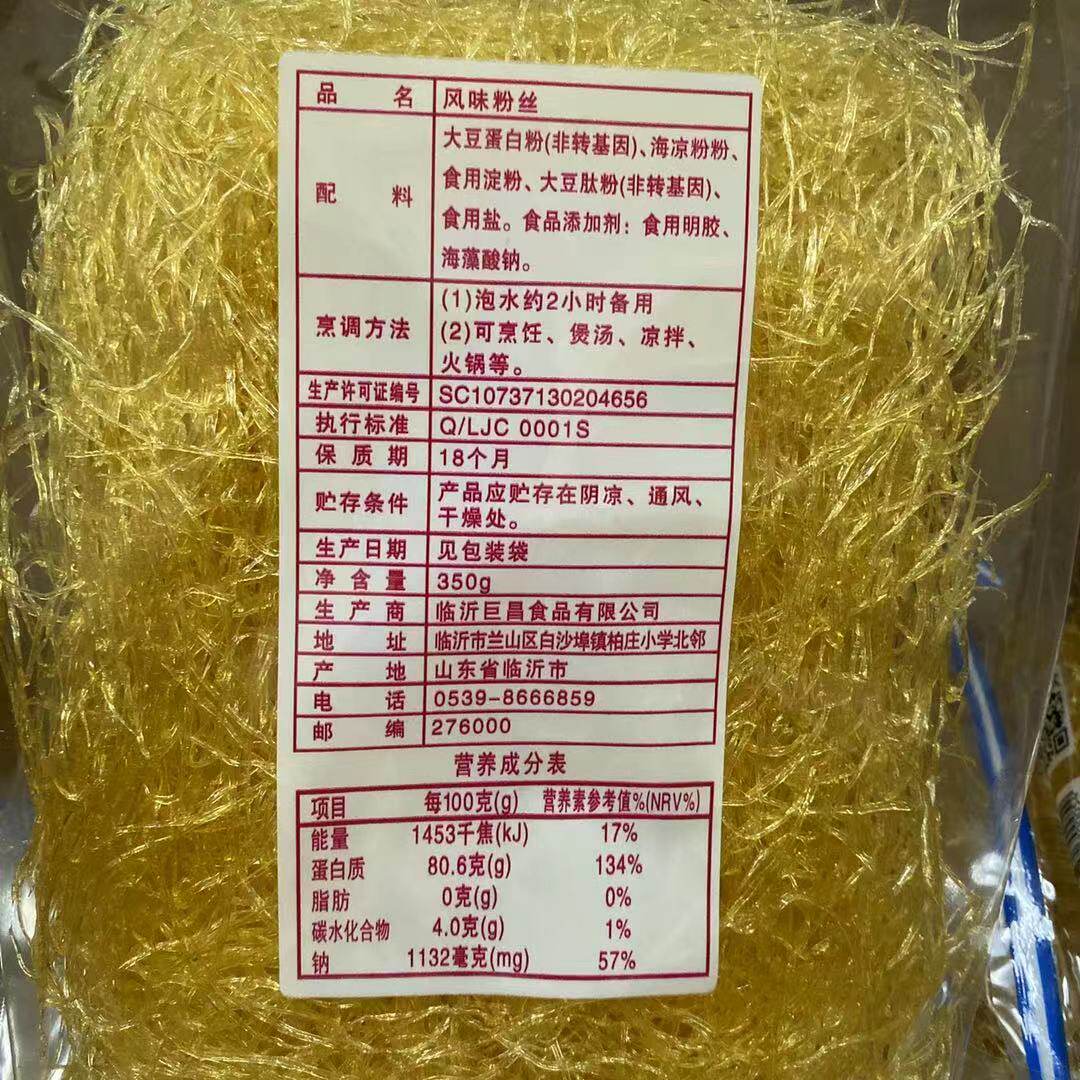 品名 风味粉丝
配料 大豆蛋白粉(非转基因)、海凉粉粉、
食用淀粉、大豆肽粉(非转基因)、
食用盐。食品添加剂：食用明胶、
海藻酸钠。
烹调方法 (1)泡水约2小时备用
(2)可烹饪、煲汤、凉拌、
火锅等。
生产许可证编号 SC10737130204656
执行标准 Q/LJC 0001S
保质期 18个月
贮存条件 产品应贮存在阴凉、通风、
干燥处。
生产日期 见包装袋
净含量 350g
生产商 临沂巨昌食品有限公司
地址 临沂市兰山区白沙埠镇柏庄小学北邻
产地 山东省临沂市
电话 0539-8666859
邮编 276000
营养成分表
项目 每100克(g) 营养素参考值%(NRV%)
能量 1453千焦(kJ) 17%
蛋白质 80.6克(g) 134%
脂肪 0克(g) 0%
碳水化合物 4.0克(g) 1%
钠 1132毫克(mg) 57%